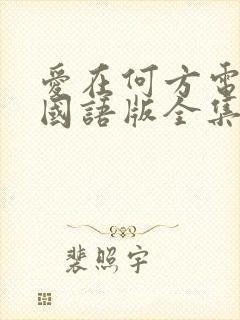 愛在何方電
國語版全集
裴照宇